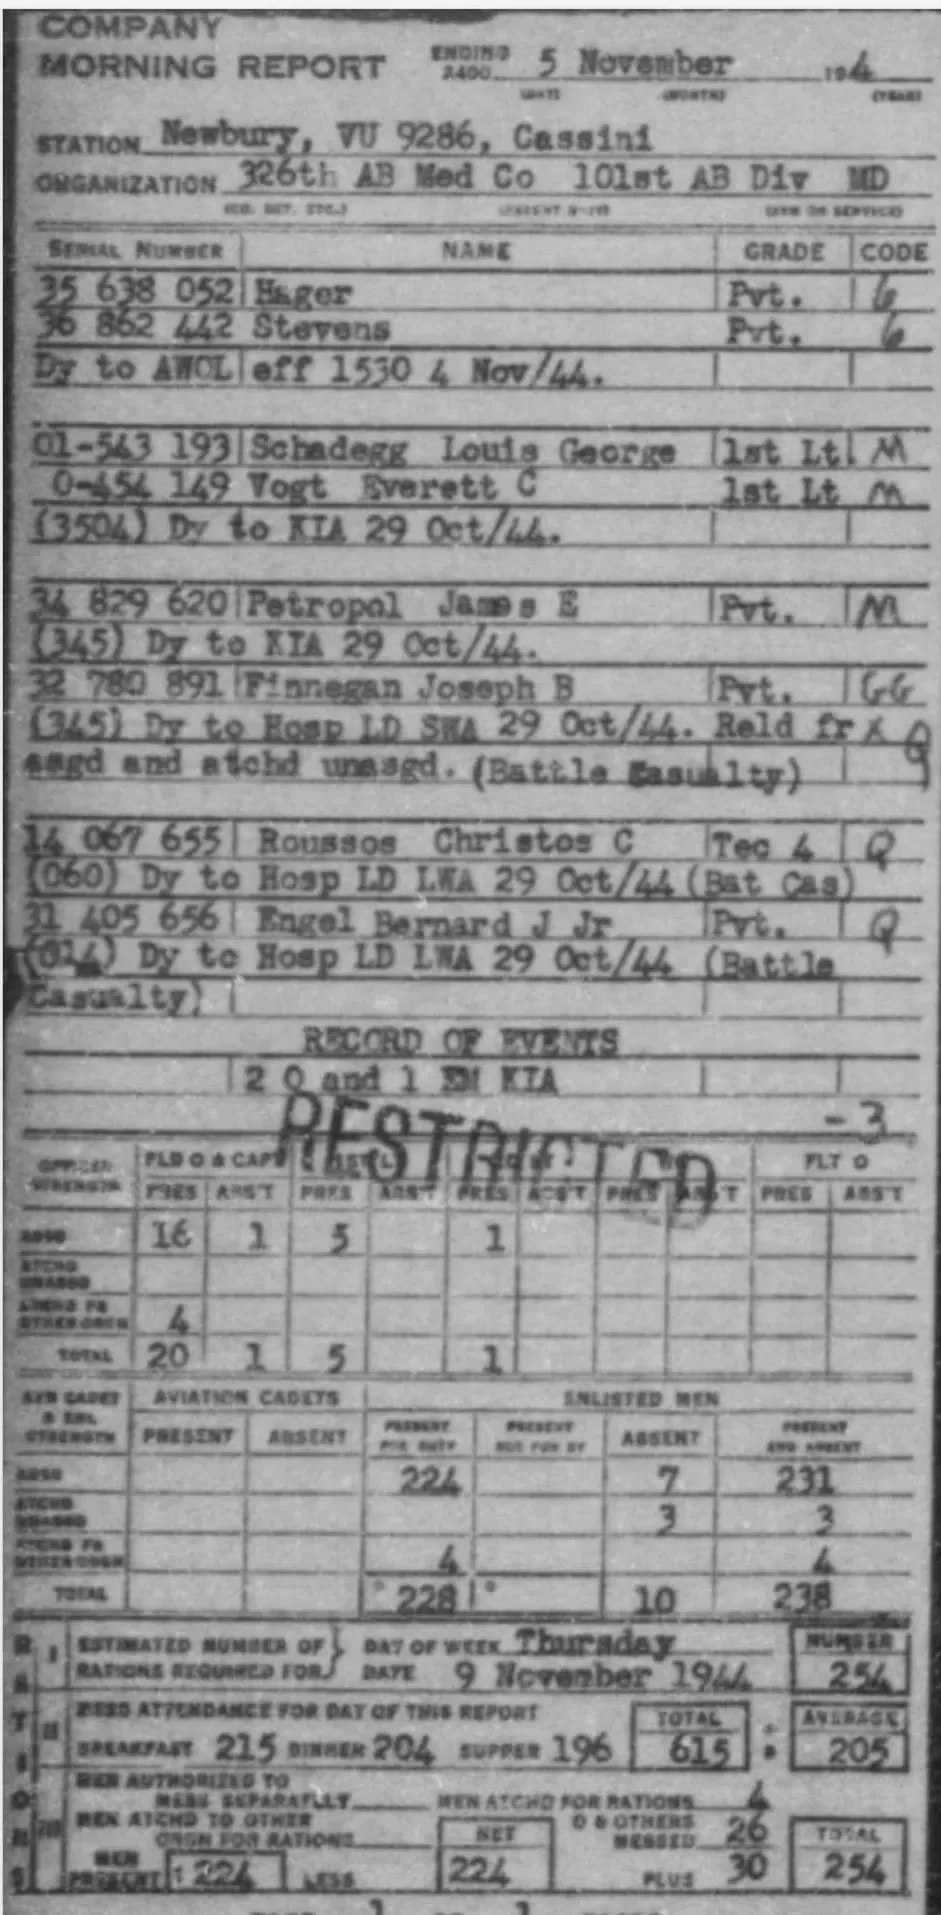 COMPANY
MORNING REPORT ENDING 2400 5 November 194 4
(DAY) (MONTH) (YEAR)
STATION Newbury, VU 9286, Cassini
ORGANIZATION 326th AB Med Co 101st AB Div MD
SERIAL NUMBER NAME GRADE CODE
35 638 052 Hager Pvt. 6
36 862 442 Stevens Pvt. 6
Dy to AWOL eff 1530 4 Nov/44.
01-543 193 Schadegg Louis George 1st Lt. M
0-454 149 Vogt Everett C 1st Lt M
(3504) Dy to KIA 29 Oct/44.
34 829 620 Petropol James E Pvt. M
(345) Dy to KIA 29 Oct/44.
32 780 891 Finnegan Joseph B Pvt. GG
(345) Dy to Hosp LD SWA 29 Oct/44. Reld fr X Q
asgd and atchd unasgd. (Battle Casualty)
14 067 655 Roussos Christos C Tec 4 Q
(060) Dy to Hosp LD LWA 29 Oct/44 (Bat Cas)
31 405 656 Engel Bernard J Jr Pvt. Q
(014) Dy to Hosp LD LWA 29 Oct/44 (Battle
Casualty)
RECORD OF EVENTS
2 O and 1 EM KIA
-3
RESTRICTED
OFFICER STRENGTH FLD O & CAPT FLT O
PRES ABS'T PRES ABS'T PRES ABS'T PRES ABS'T PRES ABS'T
ASGD 16 1 5 1
ATCHD UNASGD
ATCHD FR OTHER ORGN 4
TOTAL 20 1 5 1
AVN CADET & ENL STRENGTH AVIATION CADETS ENLISTED MEN
PRESENT ABSENT PRESENT FOR DUTY PRESENT NOT FOR DY ABSENT PRESENT AND ABSENT
ASGD 224 7 231
ATCHD UNASGD 3 3
ATCHD FR OTHER ORGN 4 4
TOTAL 228 10 238
RATIONS
I ESTIMATED NUMBER OF RATIONS REQUIRED FOR DAY OF WEEK Thursday NUMBER
DATE 9 November 1944 254
II MESS ATTENDANCE FOR DAY OF THIS REPORT TOTAL AVERAGE
BREAKFAST 215 DINNER 204 SUPPER 196 615 205
III MEN AUTHORIZED TO MESS SEPARATELY MEN ATCHD FOR RATIONS 4
MEN ATCHD TO OTHER ORGN FOR RATIONS NET O & OTHERS MESSED 26 TOTAL
MEN PRESENT 224 LESS 224 PLUS 30 254